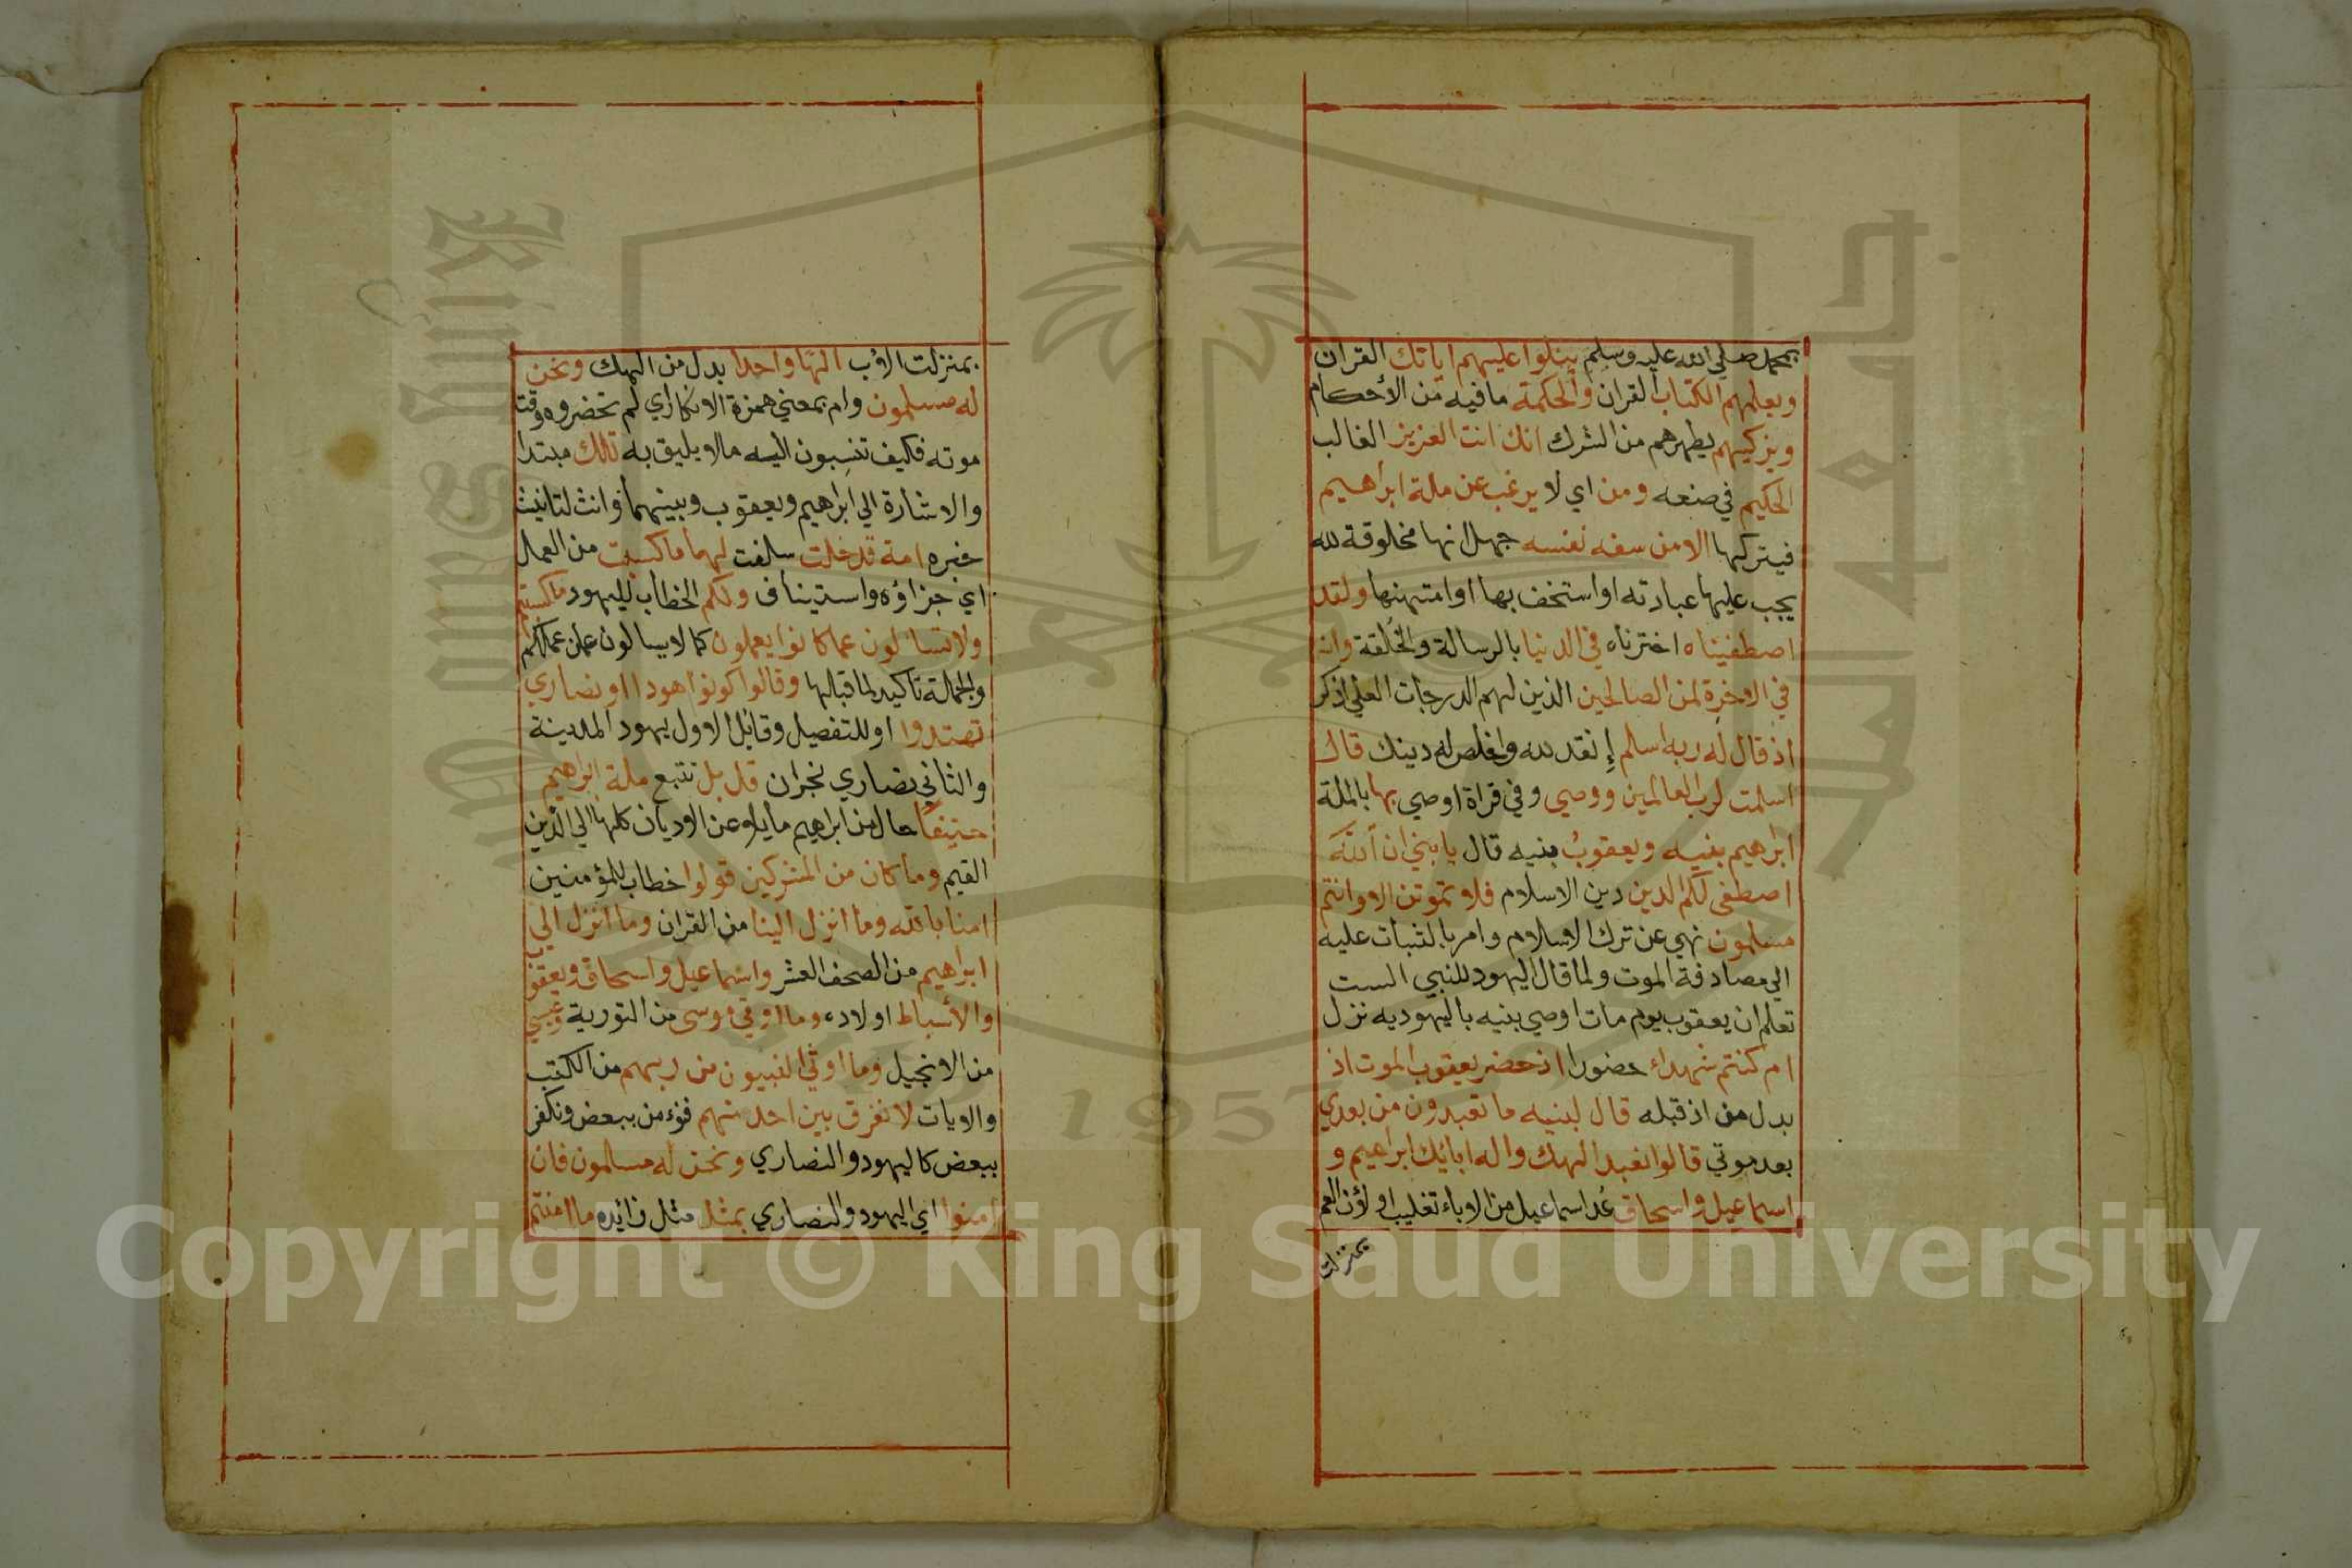 بمحمد صلي الله عليه وسلم يتلوا عليهم اياتك القران
ويعلمهم الكتاب القران والحكمة ما فيه من الأحكام
ويزكيهم يطهرهم من الشرك انك انت العزيز الغالب
الحكيم في صنعه ومن اي لا يرغب عن ملة ابراهيم
فيتركها الا من سفه نفسه جهل انها مخلوقة لله
يجب عليها عبادته او استخف بها او امتهنها ولقد
اصطفيناه اخترناه في الدنيا بالرسالة والخلقة وانه
في الاخرة لمن الصالحين الذين لهم الدرجات العلي اذكر
اذ قال له ربه اسلم إنقد لله واخلص له دينك قال
اسلمت لرب العالمين ووصي وفي قراة اوصي بها بالملة
ابراهيم بنيه ويعقوبُ بنيه قال يا بني ان الله
اصطفي لكم الدين دين الاسلام فلا تموتن الا وانتم
مسلمون نهي عن ترك الاسلام وامر بالثبات عليه
الي مصادفة الموت ولما قال اليهود للنبي الست
تعلم ان يعقوب يوم مات اوصي بنيه باليهوديه نزل
ام كنتم شهداء حضورا اذ حضر يعقوب الموت اذ
بدل من اذ قبله قال لبنيه ما تعبدون من بعدي
بعد موتي قالوا نعبد الهك واله ابائك ابراهيم و
اسماعيل واسحاق عُد اسماعيل من الاباء تغليب او لأن العم
بمنزلت
بمنزلت الأب الهًا واحدا بدل من الهك ونحن
له مسلمون وام بمعني همزة الانكار اي لم تحضروه وقت
موته فكيف تنسبون اليه ما لا يليق به تلك مبتدا
والاشارة الي ابراهيم ويعقوب وبينهما وانث لتانيث
خبره امة قد خلت سلفت لهما ما كسبت من العمل
اي جزاؤه واستيناف ولكم الخطاب لليهود ما كسبتم
ولا تسالون عما كانوا يعملون كما لا يسالون عن عملكم
والجملة تاكيد لما قبلها وقالوا كونوا هودا او نصاري
تهتدوا او للتفصيل وقائل الاول يهود المدينة
والثاني نصاري نجران قل بل نتبع ملة ابراهيم
حنيفًا حال من ابراهيم مايلا عن الاديان كلها الي الدين
القيم وما كان من المشركين قولوا خطاب للمؤمنين
امنا بالله وما انزل الينا من القران وما انزل الي
ابراهيم من الصحف العشر واسماعيل واسحاق ويعقوب
والأسباط اولاده وما اوتي موسي من التورية وعيسي
من الانجيل وما اوتي النبيون من ربهم من الكتب
والايات لا نفرق بين احد منهم فنؤمن ببعض ونكفر
ببعض كاليهود والنصاري ونحن له مسلمون فان
امنوا اي اليهود والنصاري بمثل مثل زائده ما امنتم
Copyright © King Saud University
King Saud University
1957